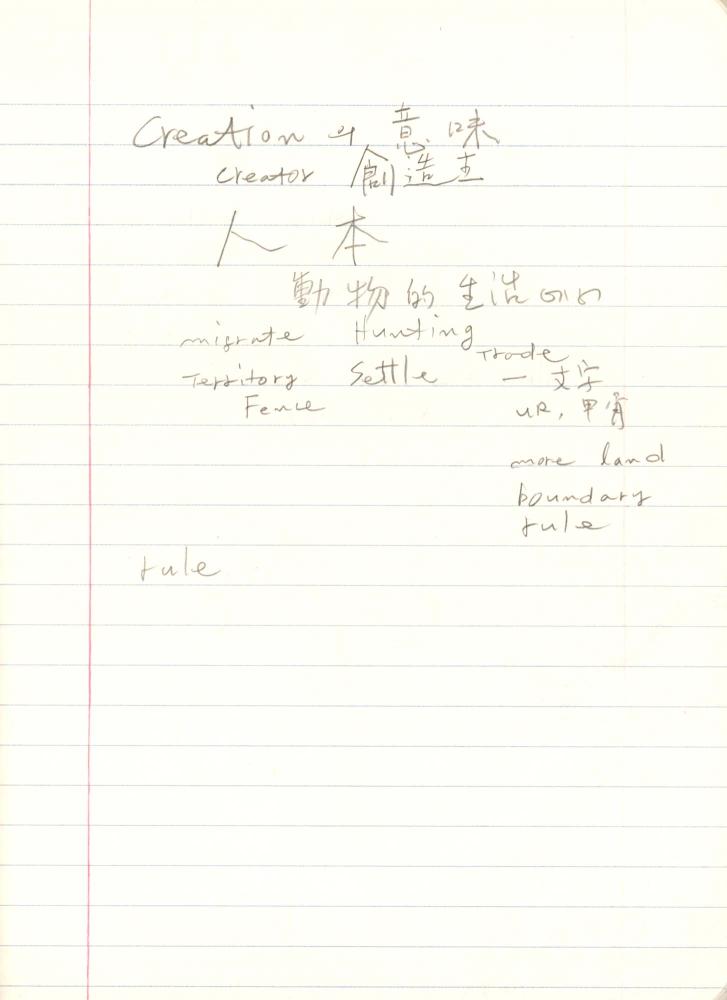 Creation 의 意味
creator 創造主
人 本
動物的 生活 에서
migrate Hunting
Trade
Territory Settle 一 文字
Fence UR, 甲骨
more land
boundary
rule
rule